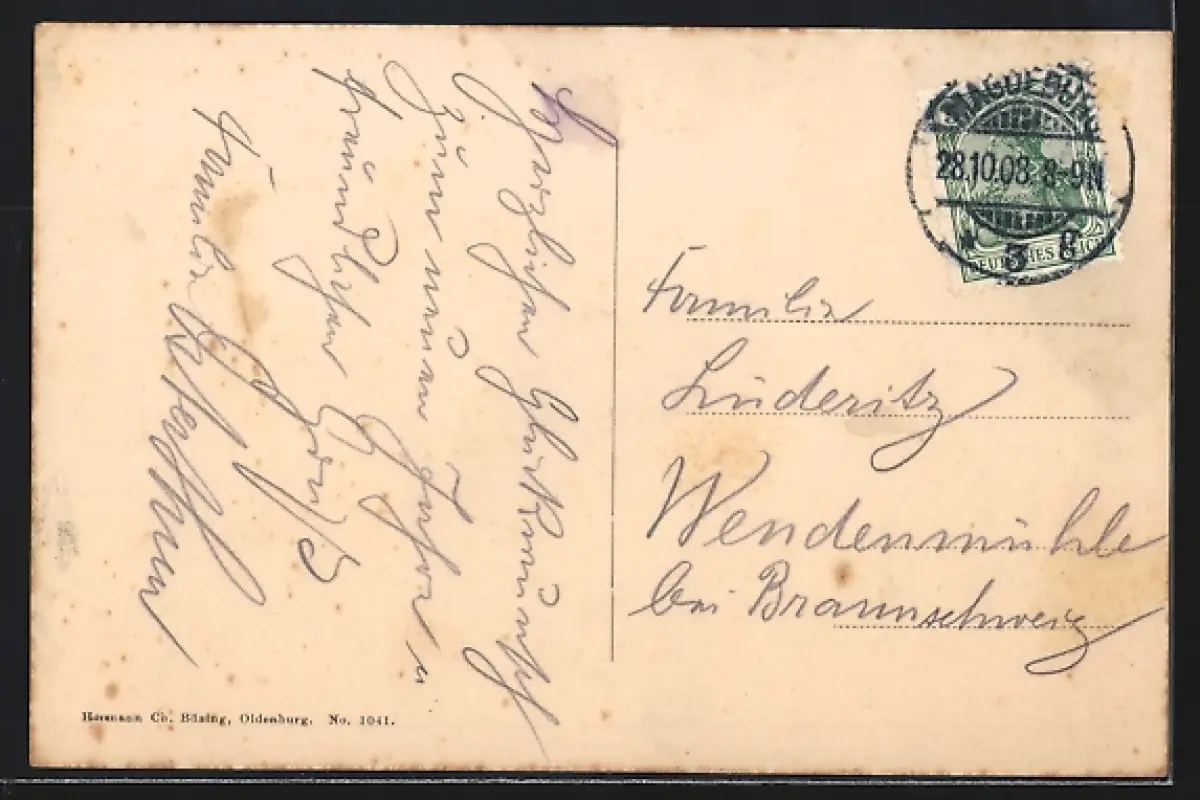 Herzlichen Glückwunsch
zum neuen Jahre u
freundlichen Gruß
Familie
MAGDEBURG
28.10.08. 8-9N
* 3 g
DEUTSCHES REICH
Familie
Lüderitz
Wendenmühle
bei Braunschweig
Hermann Ch. Büsing, Oldenburg. No. 1041.